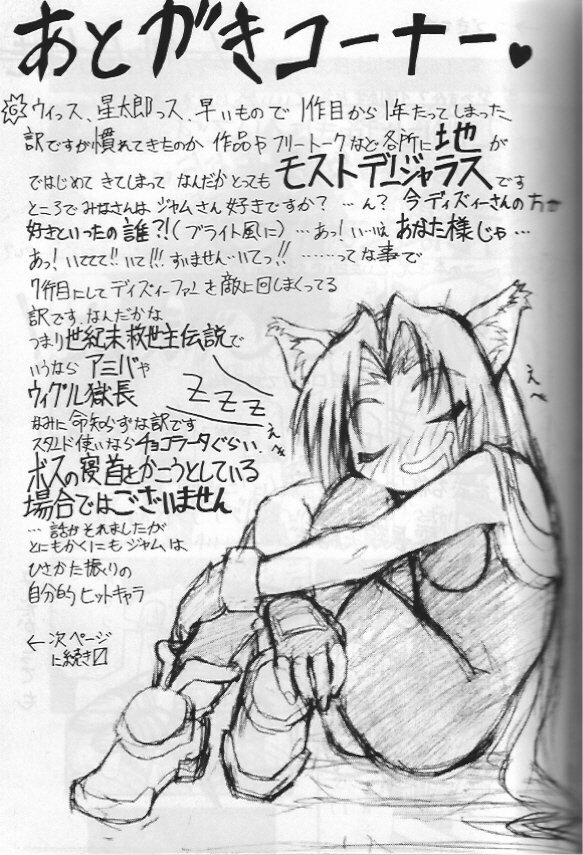 あとがきコーナー♥
ウィっス、星太郎っス、早いもので1作目から1年たってしまった
訳ですが慣れてきたのか 作品やフリートークなど各所に地が
ではじめて きてしまって なんだかとってもモストデンジャラスです
ところでみなさんは ジャムさん好きですか? …ん? 今ディズィーさんの方が
好きといったの誰?!(ブライト風に)…あっ!い…いは あなた様じゃ…
あっ!いててて!!いて!!!すいません…いてっ!! ……ってな事で
7作目にしてディズィーファンを敵に回しまくってる
訳です。なんだかな
つまり世紀末救世主伝説で
いうなら アミバや
ウィグル獄長
なみに命知らずな訳です
スタンド使いならチョコラータぐらい、
ボスの寝首をかこうとしている
場合ではございません
…話がそれましたが
とにもかくにもジャムは
ひさかた振りの
自分的ヒットキャラ
←次ページ
に続き
ZZZ
え〜